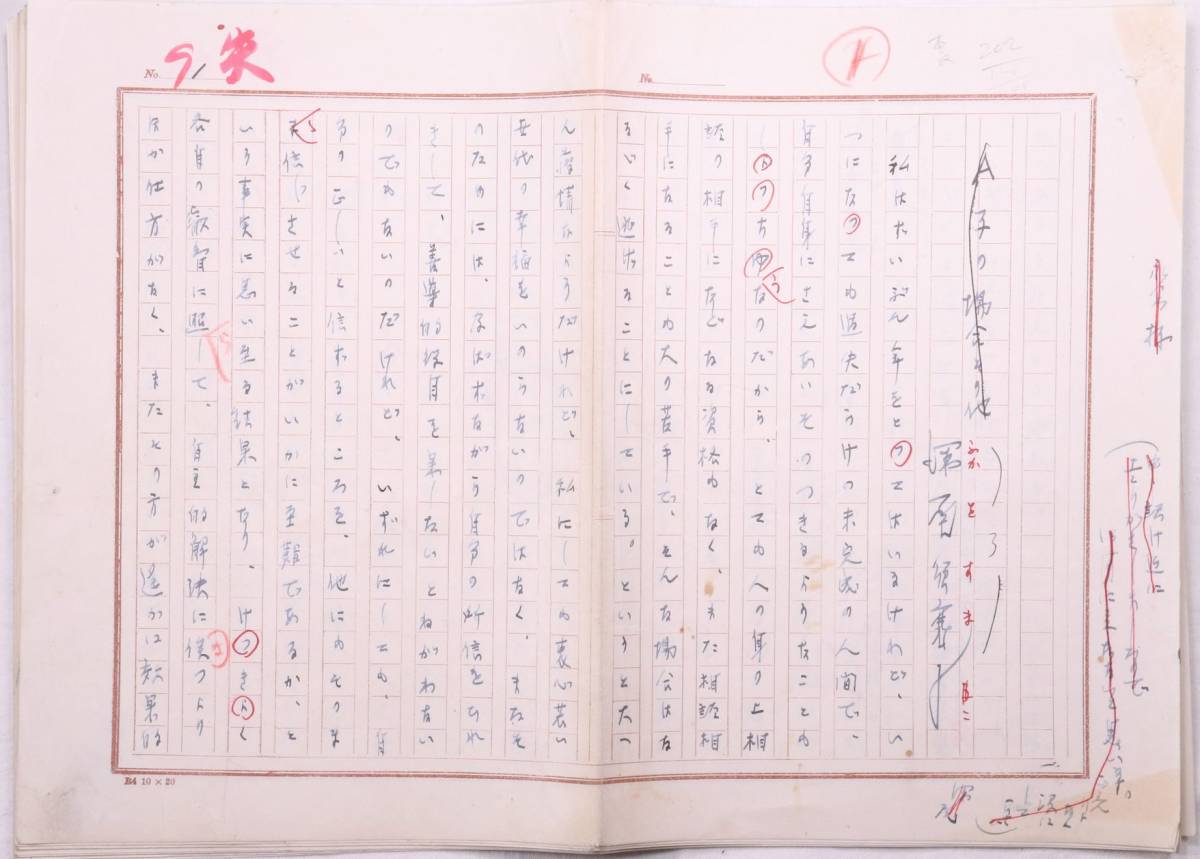 A子の場合その他
深尾須磨子
ふかをすまこ
私はだいぶん年をとつてはいるけれど、い
つになつても過失だらけの未完成の人間で、
自分自身にさえあいそのつきるようなことも
しよつちゆうなのだから、とても人の身の上相
談の相手になどなる資格もなく、また相談相
手になることも大の苦手で、そんな場合はな
るべく逃げることにしている。というと大へ
ん薄情なようだけれど、私にしても衷心若い
世代の幸福をいのらないのではなく、またそ
のためには、及ばずながら自分の所信をひれ
きして、善導的役目を果したいとねがわない
のでもないのだけれど、いずれにしても、自
分の正しいと信ずるところを、他にもそのま
ま信じさせることがいかに至難であるか、と
いう事実に思い至る結果となり、けつきよく
各自の叡智に照して、自主的解決に俟つより
ほか仕方がなく、またその方が遥かに効果的
No. 91
No.
B4 10×20